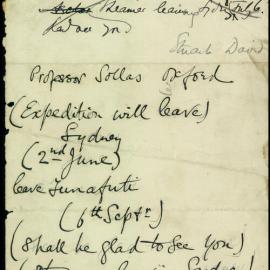 steamer leaving Sydney July 6.
Stuart David
Professor Sollas Oxford
(Expedition will leave)
Sydney
(2nd June)
leave Funafuti
(6th Septr)
(Shall be glad to see you)